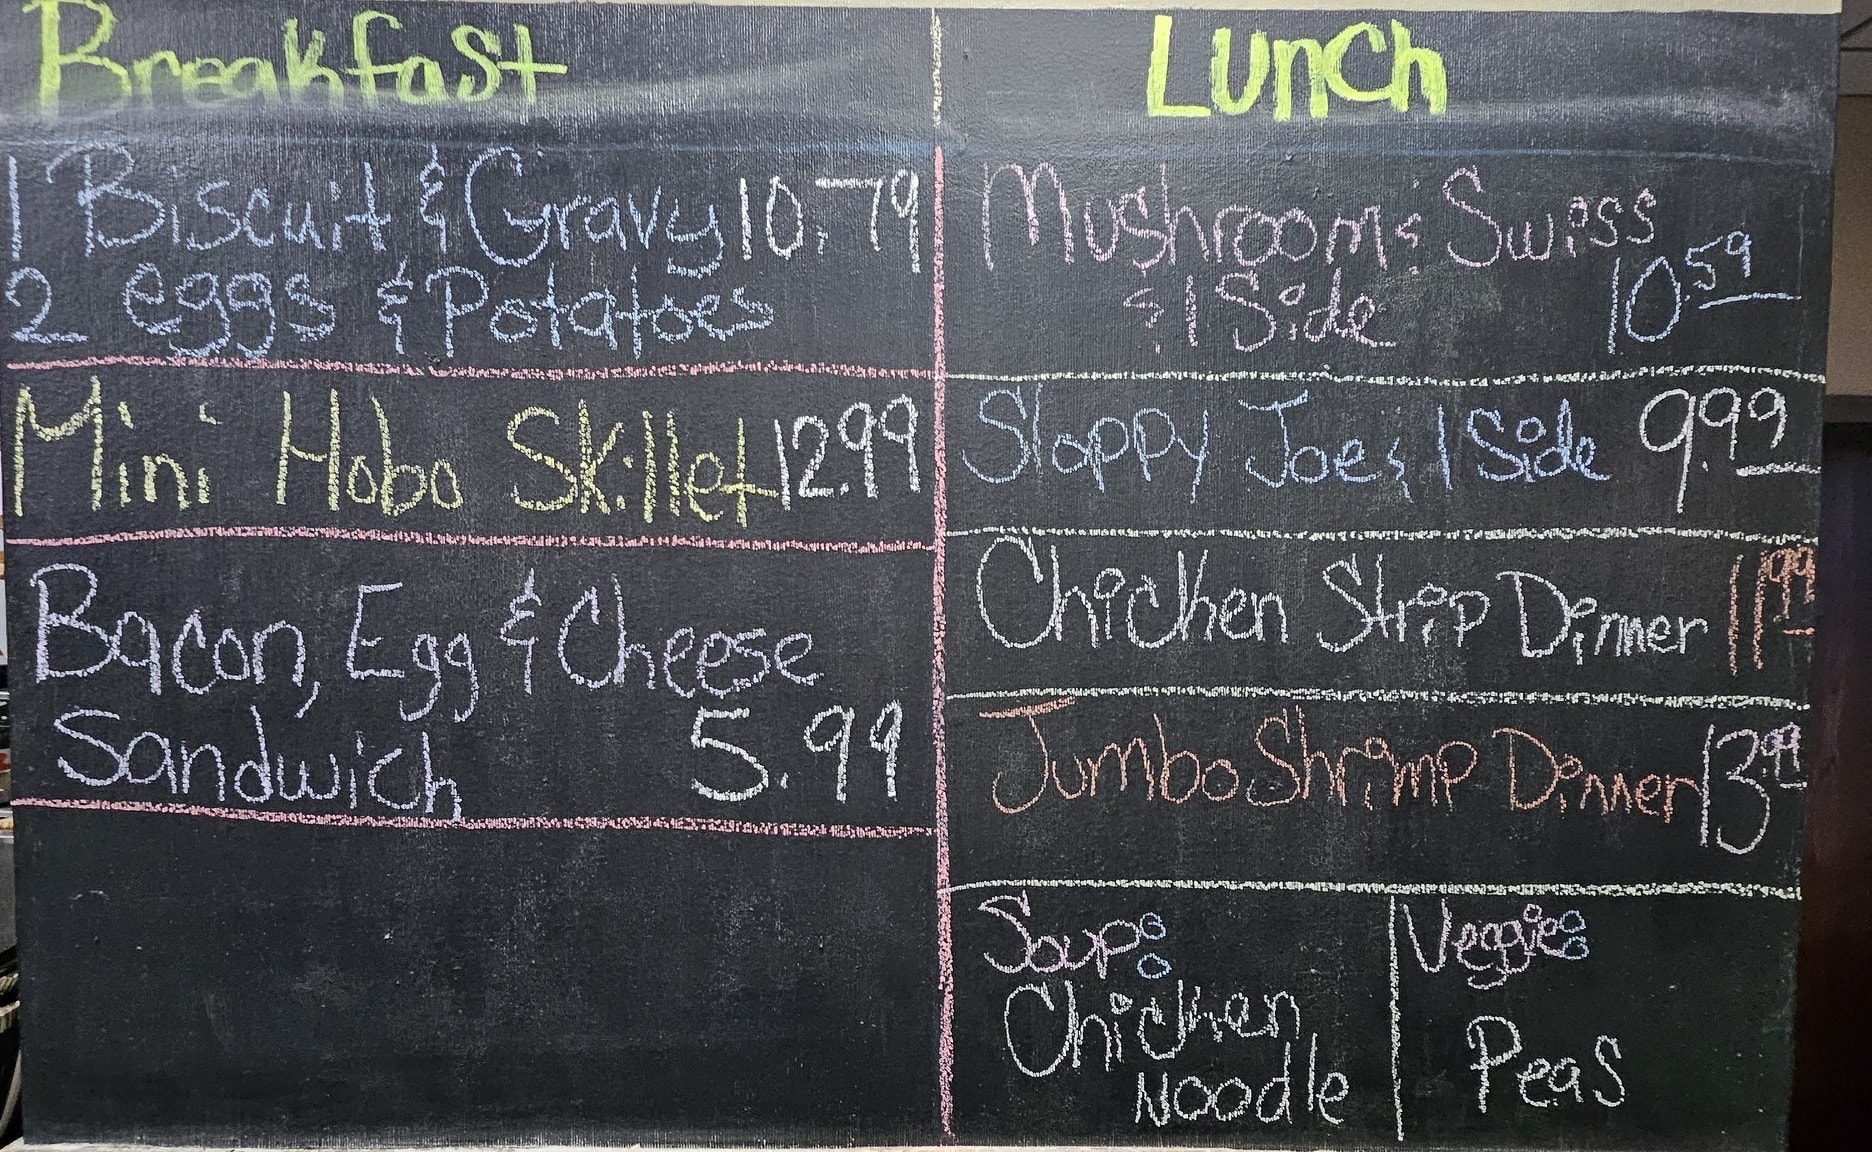 Breakfast
1 Biscuit & Gravy 10.79
2 eggs & Potatoes
Mini Hobo Skillet 12.99
Bacon, Egg & Cheese
Sandwich 5.99
Lunch
Mushroom & Swiss
& 1 Side 10.59
Sloppy Joe & 1 Side 9.99
Chicken Strip Dinner 11.99
Jumbo Shrimp Dinner 13.99
Soup:
Chicken
Noodle
Veggie:
Peas